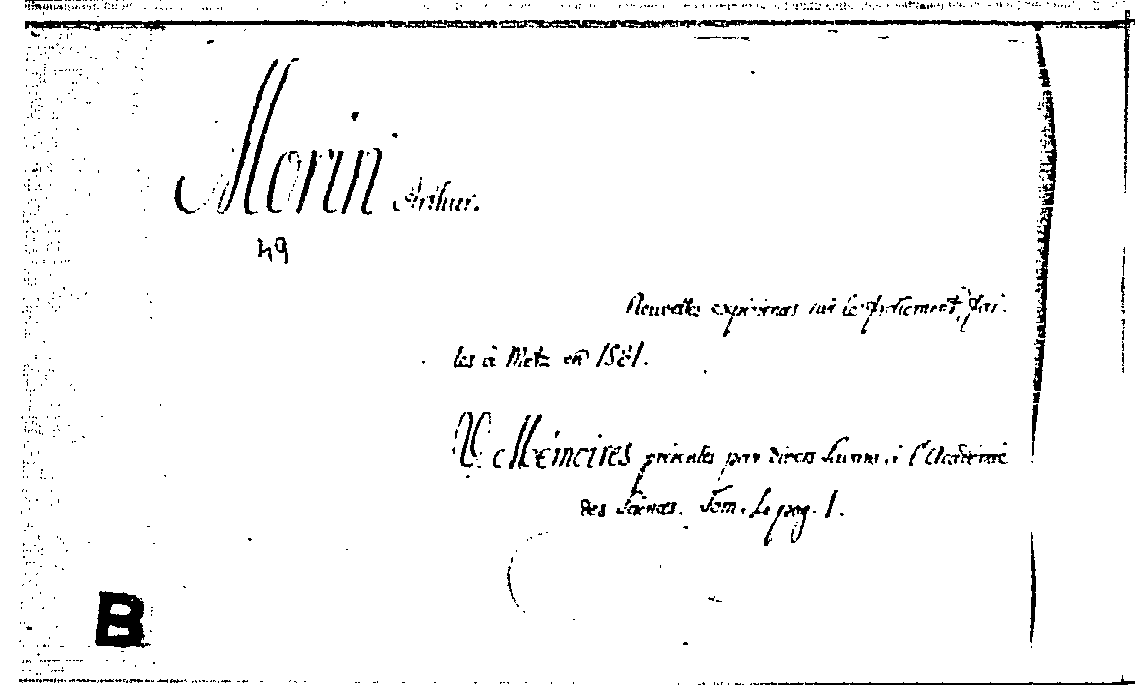 Morin Arthur.
49
Nouvelles expériences sur le frottement, fai-
tes à Metz en 1831.
V. Mémoires présentés par divers savans, à l'Académie
des Sciences. Tom. pag. 1.
B